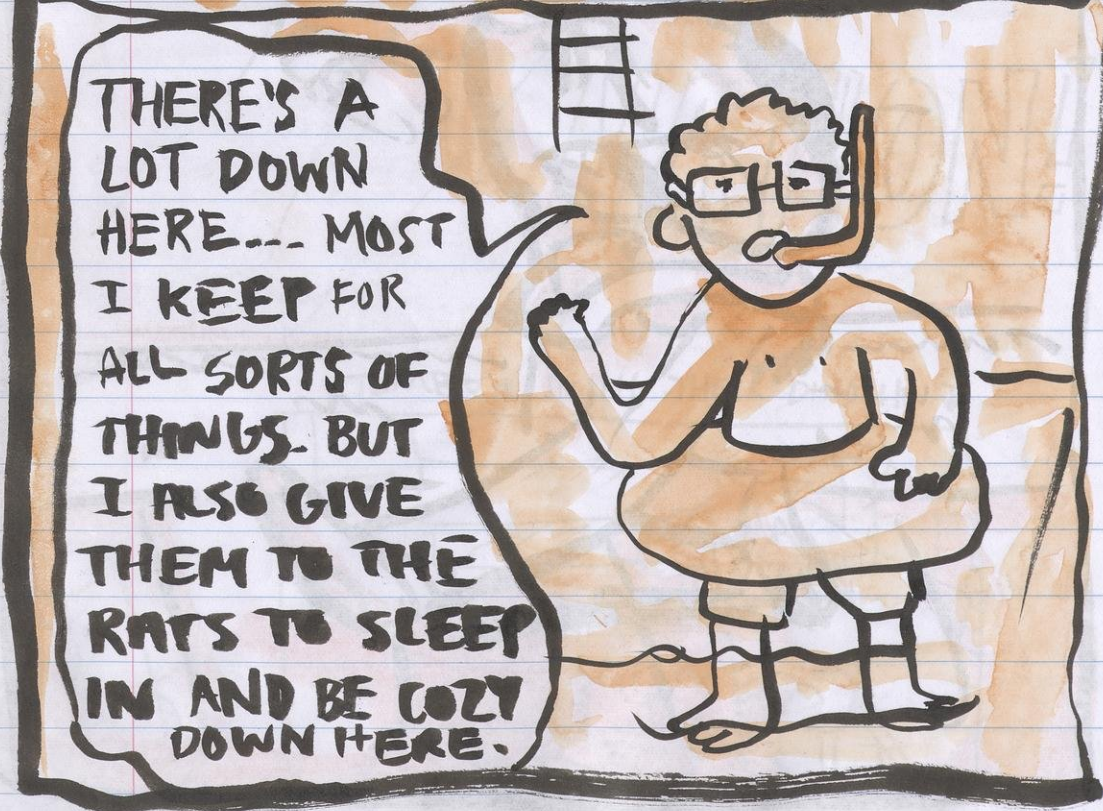 THERE'S A
LOT DOWN
HERE... MOST
I KEEP FOR
ALL SORTS OF
THINGS. BUT
I ALSO GIVE
THEM TO THE
RATS TO SLEEP
IN AND BE COZY
DOWN HERE.